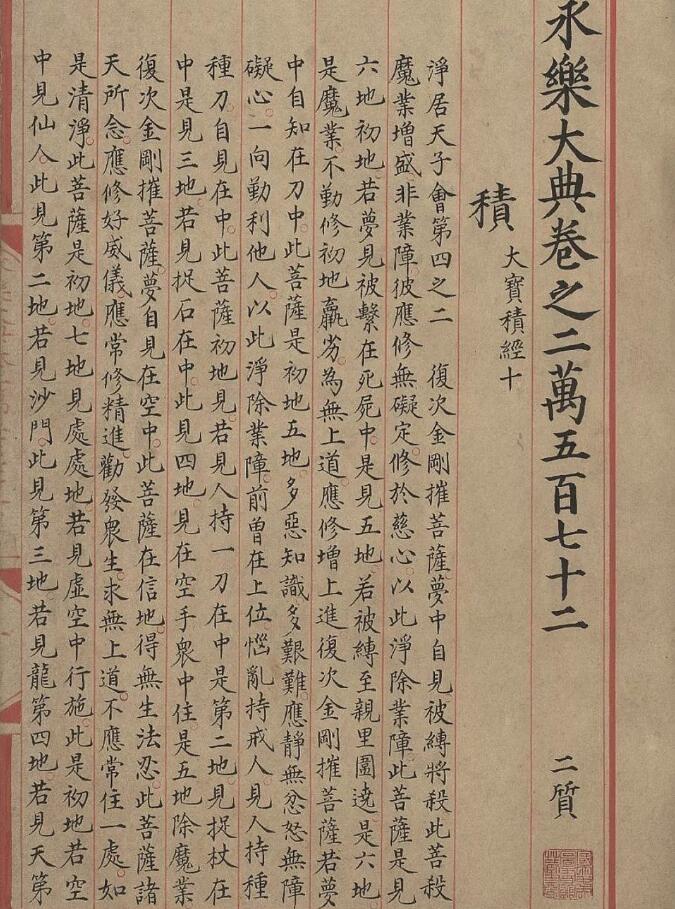 永樂大典卷之二萬五百七十二
二質
積
大寶積經十
淨居天子會第四之二 復次金剛摧菩薩夢中自見被縛將殺此菩殺
魔業增盛非業障彼應修無礙定修於慈心以此淨除業障此菩薩是見
六地初地若夢見被繫在死屍中是見五地若被縛至親里圍遶是六地
是魔業不勤修初地羸劣為無上道應修增上進復次金剛摧菩薩若夢
中自知在刀中此菩薩是初地五地多惡知識多艱難應靜無忿怒無障
礙心一向勤利他人以此淨除業障前曾在上位惱亂持戒人見人持種
種刀自見在中此菩薩初地見若見人持一刀在中是第二地見捉杖在
中是見三地若見捉石在中此見四地見在空手衆中住是五地除魔業
復次金剛摧菩薩夢自見在空中此菩薩在信地得無生法忍此菩薩諸
天所念應修好威儀應常修精進勸發衆生求無上道不應常住一處如
是清淨此菩薩是初地七地見處處地若見虛空中行施此是初地若空
中見仙人此見第二地若見沙門此見第三地若見龍第四地若見天第